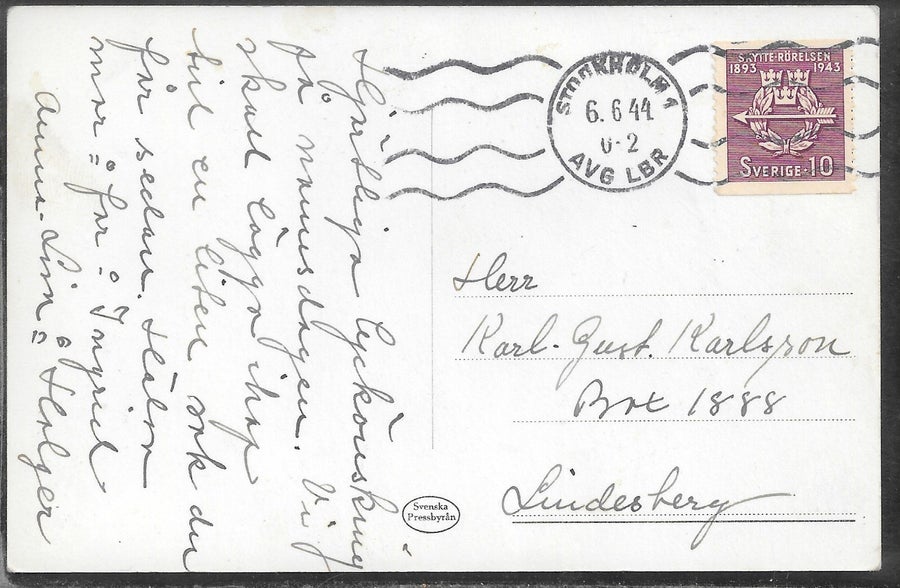 Hjärtliga lyckönskning
på namnsdagen. Vi
skall lägga ihop
till en liten sak du
får sedan. Hälsn
mor = far = Ingrid
Anna-Lisa = Holger
STOCKHOLM 1
6. 6 44
0-2
AVG LBR
SKYTTE-RÖRELSEN
1893 1943
SVERIGE·10
Herr
Karl-Gust. Karlsson
Box 1888
Lindesberg
Svenska
Pressbyrån